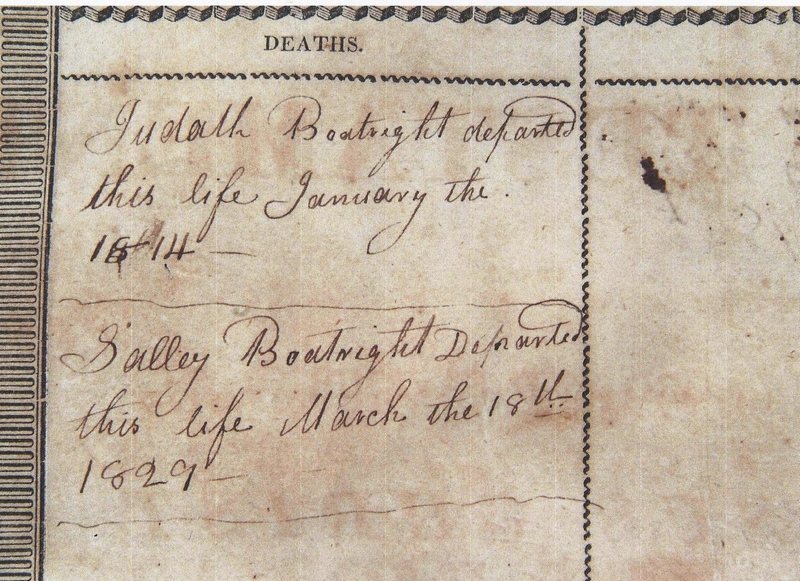 DEATHS.
Judath Boatright departed
this life January the
1814 —
Salley Boatright Departed
this life March the 18th
1829 —